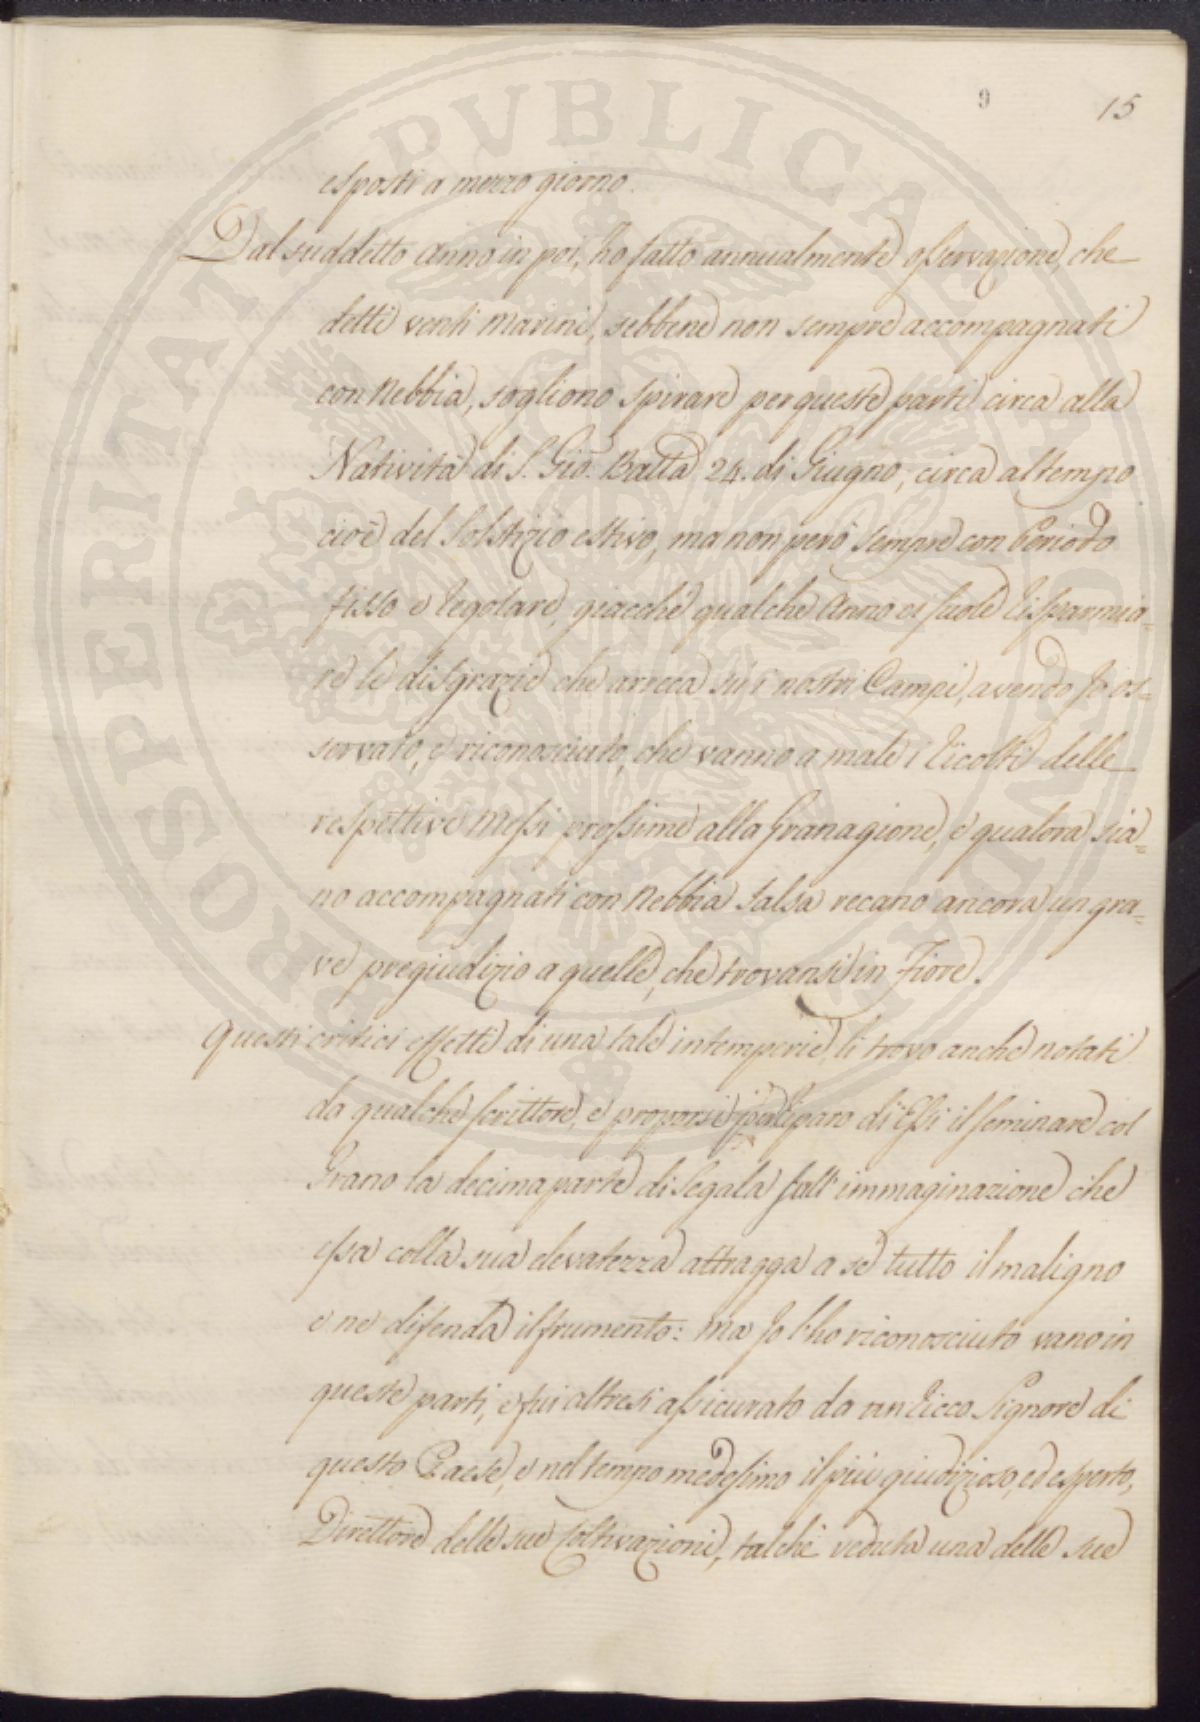 9
15
esposti a mezzo giorno.
Dal suddetto anno in poi, ho fatto annualmente osservazione, che
detti venti marini, sebbene non sempre accompagnati
con Nebbia, sogliono spirare per queste parti circa alla
Natività di S. Gio. Batta 24. di Giugno, circa al tempo
cioè del Solstizio estivo, ma non però sempre con Periodo
fisso e regolare, giacchè qualche anno ci suole risparmia=
re le disgrazie che arreca sù i nostri Campi, avendo Jo os=
servato, e riconosciuto, che vanno a male i ricolti delle
respettive Messi prossime alla Granagione, e qualora sia=
no accompagnati con Nebbia salsa recano ancora un gra=
ve pregiudizio a quelle, che trovansi in Fiore.
Questi critici effetti di una tale intemperie, li trovo anche notati
da qualche scrittore, e proporsi per riparo di Essi il seminare col
Grano la decima parte di Segala sull' immaginazione che
essa colla sua elevatezza attragga a sè tutto il maligno
e ne difenda il frumento: Ma Jo l'ho riconosciuto vano in
queste parti, e fui altresì assicurato da un ricco Signore di
questo Paese, e nel tempo medesimo il più giudizioso, ed esperto,
Direttore delle sue Coltivazioni, talchè veduta una delle sue
PROSPERITATI PVBLICAE